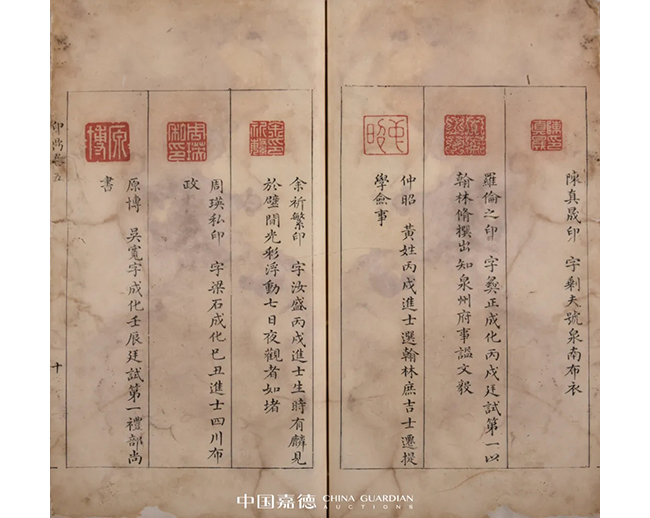 陳真晟印　字剩夫號泉南布衣
羅倫之印　字彜正成化丙戌廷試第一以
翰林脩撰出知泉州府事謚文毅
仲昭　黄姓丙戌進士選翰林庶吉士遷提
學僉事
余祈繁印　字汝盛丙戌進士生時有麟見
於壁間光彩浮動七日夜觀者如堵
周瑛私印　字梁石成化己丑進士四川布
政
原博　吴寬字成化壬辰廷試第一禮部尚
書
十
中国嘉德 CHINA GUARDIAN
AUCTIONS